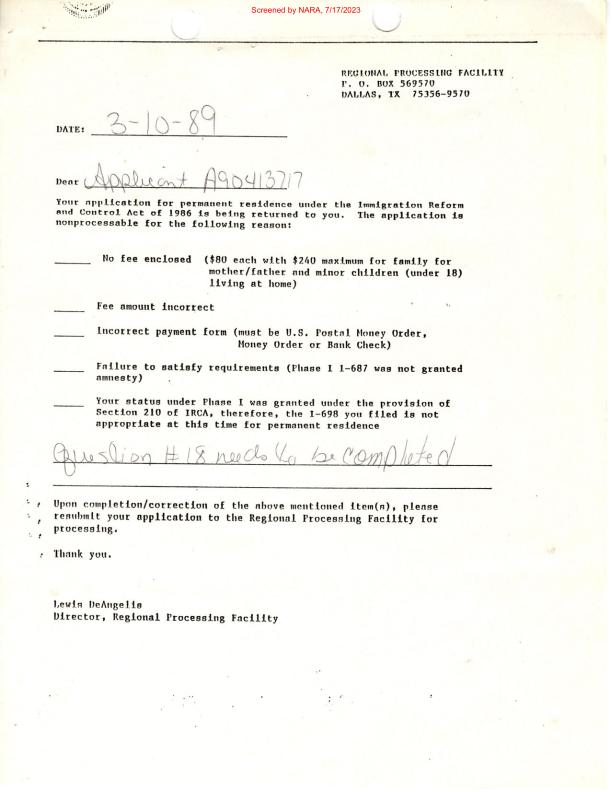 Screened by NARA, 7/17/2023
REGIONAL PROCESSING FACILITY
P. O. BOX 569570
DALLAS, TX 75356-9570
DATE: 3-10-89
Dear Applicant A90413717
Your application for permanent residence under the Immigration Reform
and Control Act of 1986 is being returned to you. The application is
nonprocessable for the following reason:
______ No fee enclosed ($80 each with $240 maximum for family for
mother/father and minor children (under 18)
living at home)
_____ Fee amount incorrect
_____ Incorrect payment form (must be U.S. Postal Money Order,
Money Order or Bank Check)
_____ Failure to satisfy requirements (Phase I I-687 was not granted
amnesty)
_____ Your status under Phase I was granted under the provision of
Section 210 of IRCA, therefore, the I-698 you filed is not
appropriate at this time for permanent residence
Question #18 needs to be completed
Upon completion/correction of the above mentioned item(s), please
resubmit your application to the Regional Processing Facility for
processing.
Thank you.
Lewis DeAngelis
Director, Regional Processing Facility